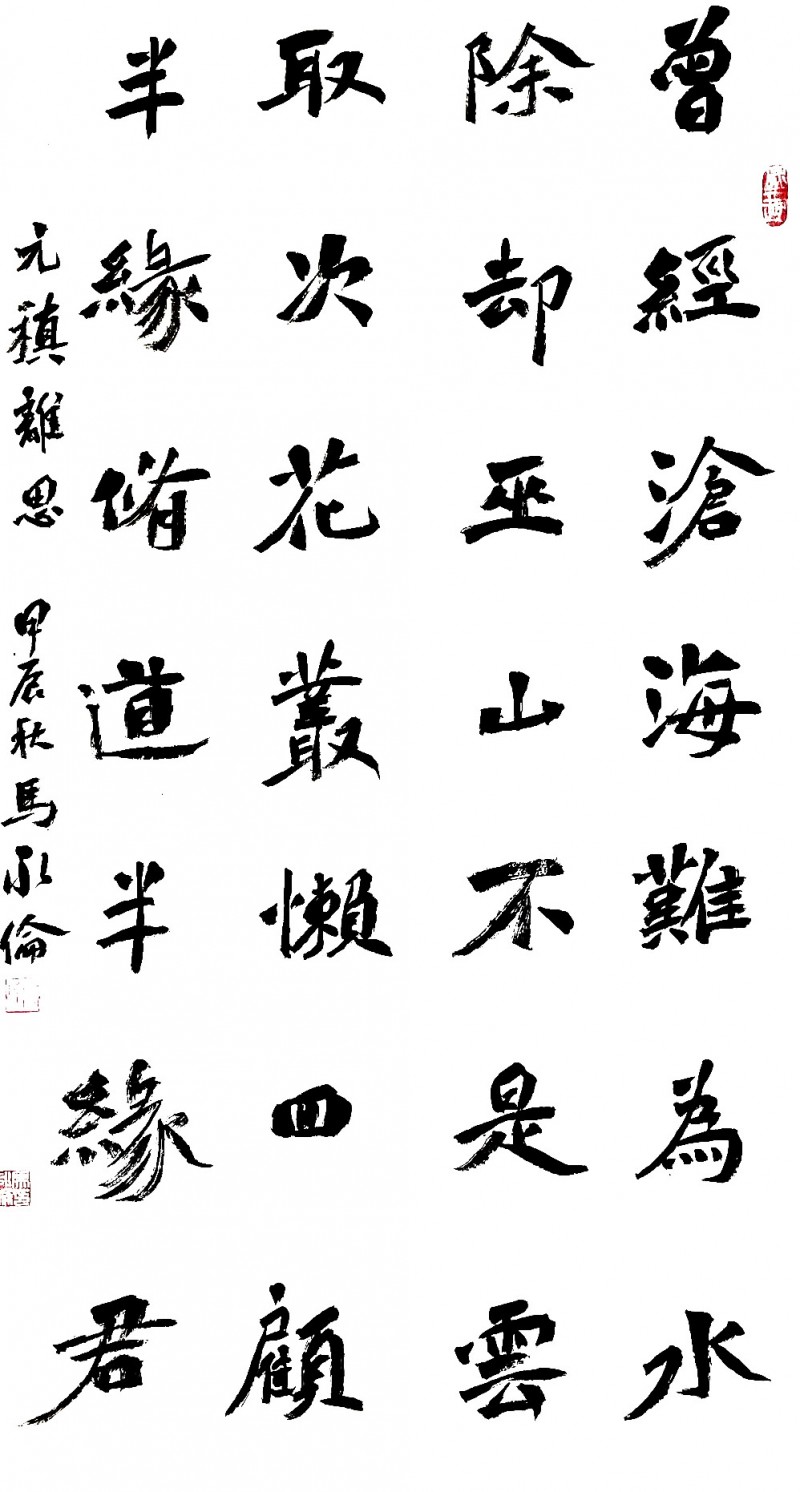 曾經滄海難為水
除却巫山不是雲
取次花叢懶回顧
半緣脩道半緣君
元稹離思 甲辰秋馬永倫